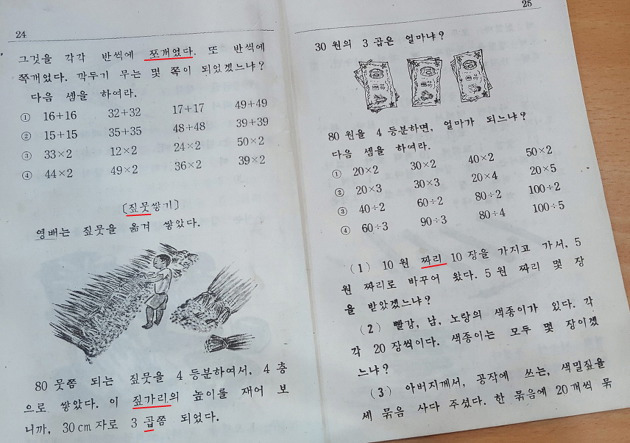 24
그것을 각각 반씩에 쪼개었다. 또 반씩에
쪽개었다. 깍두기 무는 몇 쪽이 되었겠느냐?
다음 셈을 하여라.
① 16+16 32+32 17+17 49+49
② 15+15 35+35 48+48 39+39
③ 33×2 12×2 24×2 50×2
④ 44×2 49×2 36×2 39×2
[짚뭇쌓기]
영배는 짚뭇을 옮겨 쌓았다.
80 뭇쯤 되는 짚뭇을 4 등분하여서, 4 층
으로 쌓았다. 이 짚가리의 높이를 재어 보
니까, 30 cm 자로 3 곱쯤 되었다.
25
30 원의 3 곱은 얼마냐?
80 원을 4 등분하면, 얼마가 되느냐?
다음 셈을 하여라.
① 20×2 30×2 40×2 50×2
② 20×3 30×3 20×4 20×5
③ 40÷2 60÷2 80÷2 100÷2
④ 60÷3 90÷3 80÷4 100÷5
(1) 10 원 짜리 10 장을 가지고 가서, 5
원 짜리로 바꾸어 왔다. 5 원 짜리 몇 장
을 받았겠느냐?
(2) 빨강, 남, 노랑의 색종이가 있다. 각
각 20 장씩이다. 색종이는 모두 몇 장이겠
느냐?
(3) 아버지께서, 공작에 쓰는, 색밀짚을
세 묶음 사다 주셨다. 한 묶음에 20 개씩 묶